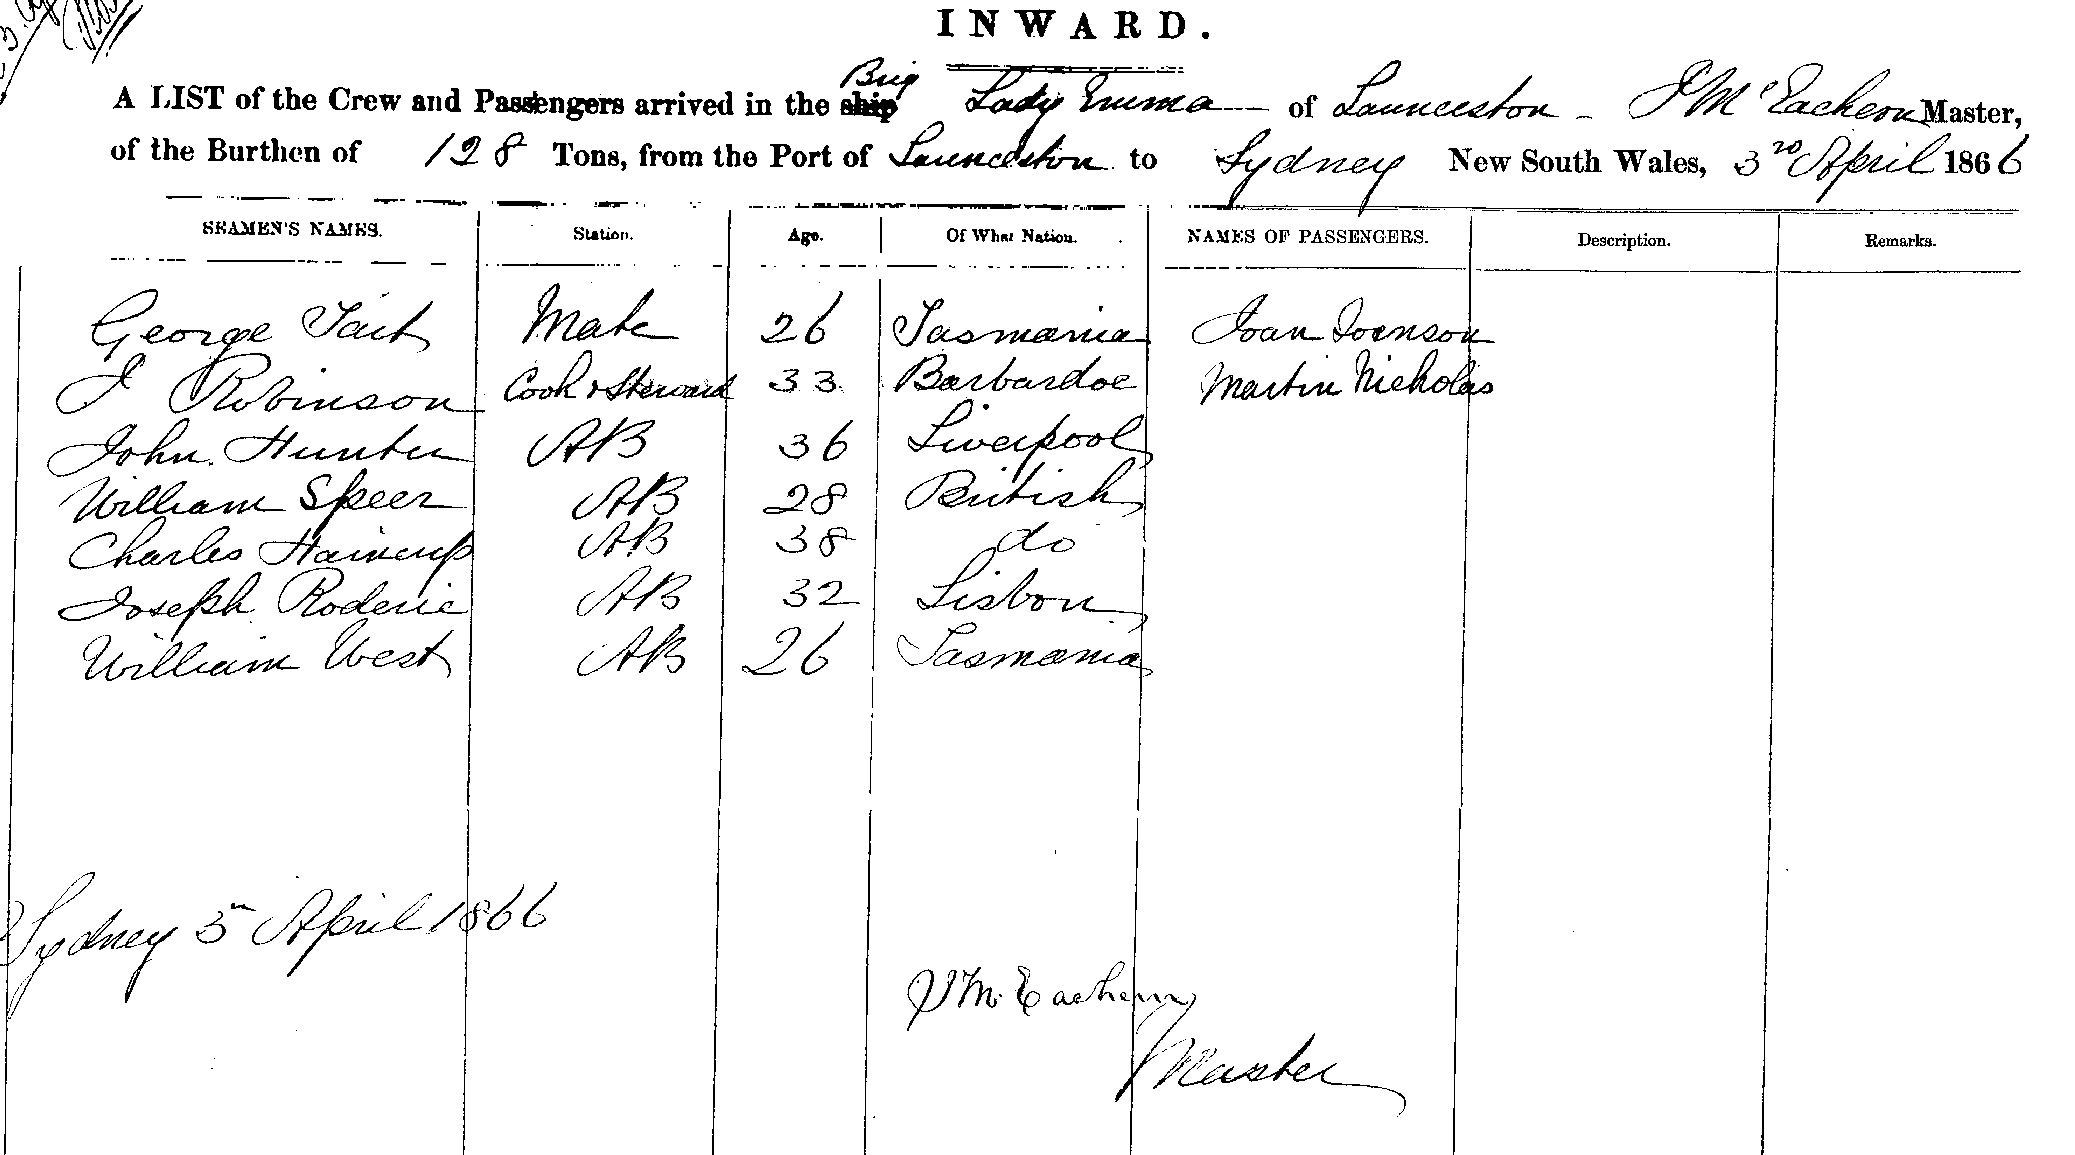 INWARD.
A LIST of the Crew and Passengers arrived in the ship Brig Lady Emma of Launceston - J McEachern Master,
of the Burthen of 128 Tons, from the Port of Launceston to Sydney New South Wales, 3rd April 1866
SEAMEN'S NAMES. Station. Age. Of What Nation. NAMES OF PASSENGERS. Description. Remarks.
George Tait Mate 26 Tasmania Joan Joenson
J Robinson Cook & Steward 33 Barbardoe Martin Nicholas
John Hunter AB 36 Liverpool
William Speer AB 28 British
Charles AB 38 do
Joseph Roderic AB 32 Lisbon
William West AB 26 Tasmania
Sydney 5 April 1866
J McEachern
Master